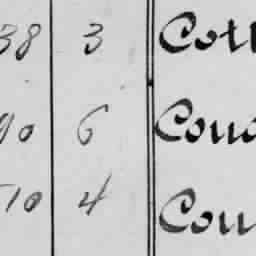 38 3 Cott
90 6 Cou
10 4 Cou